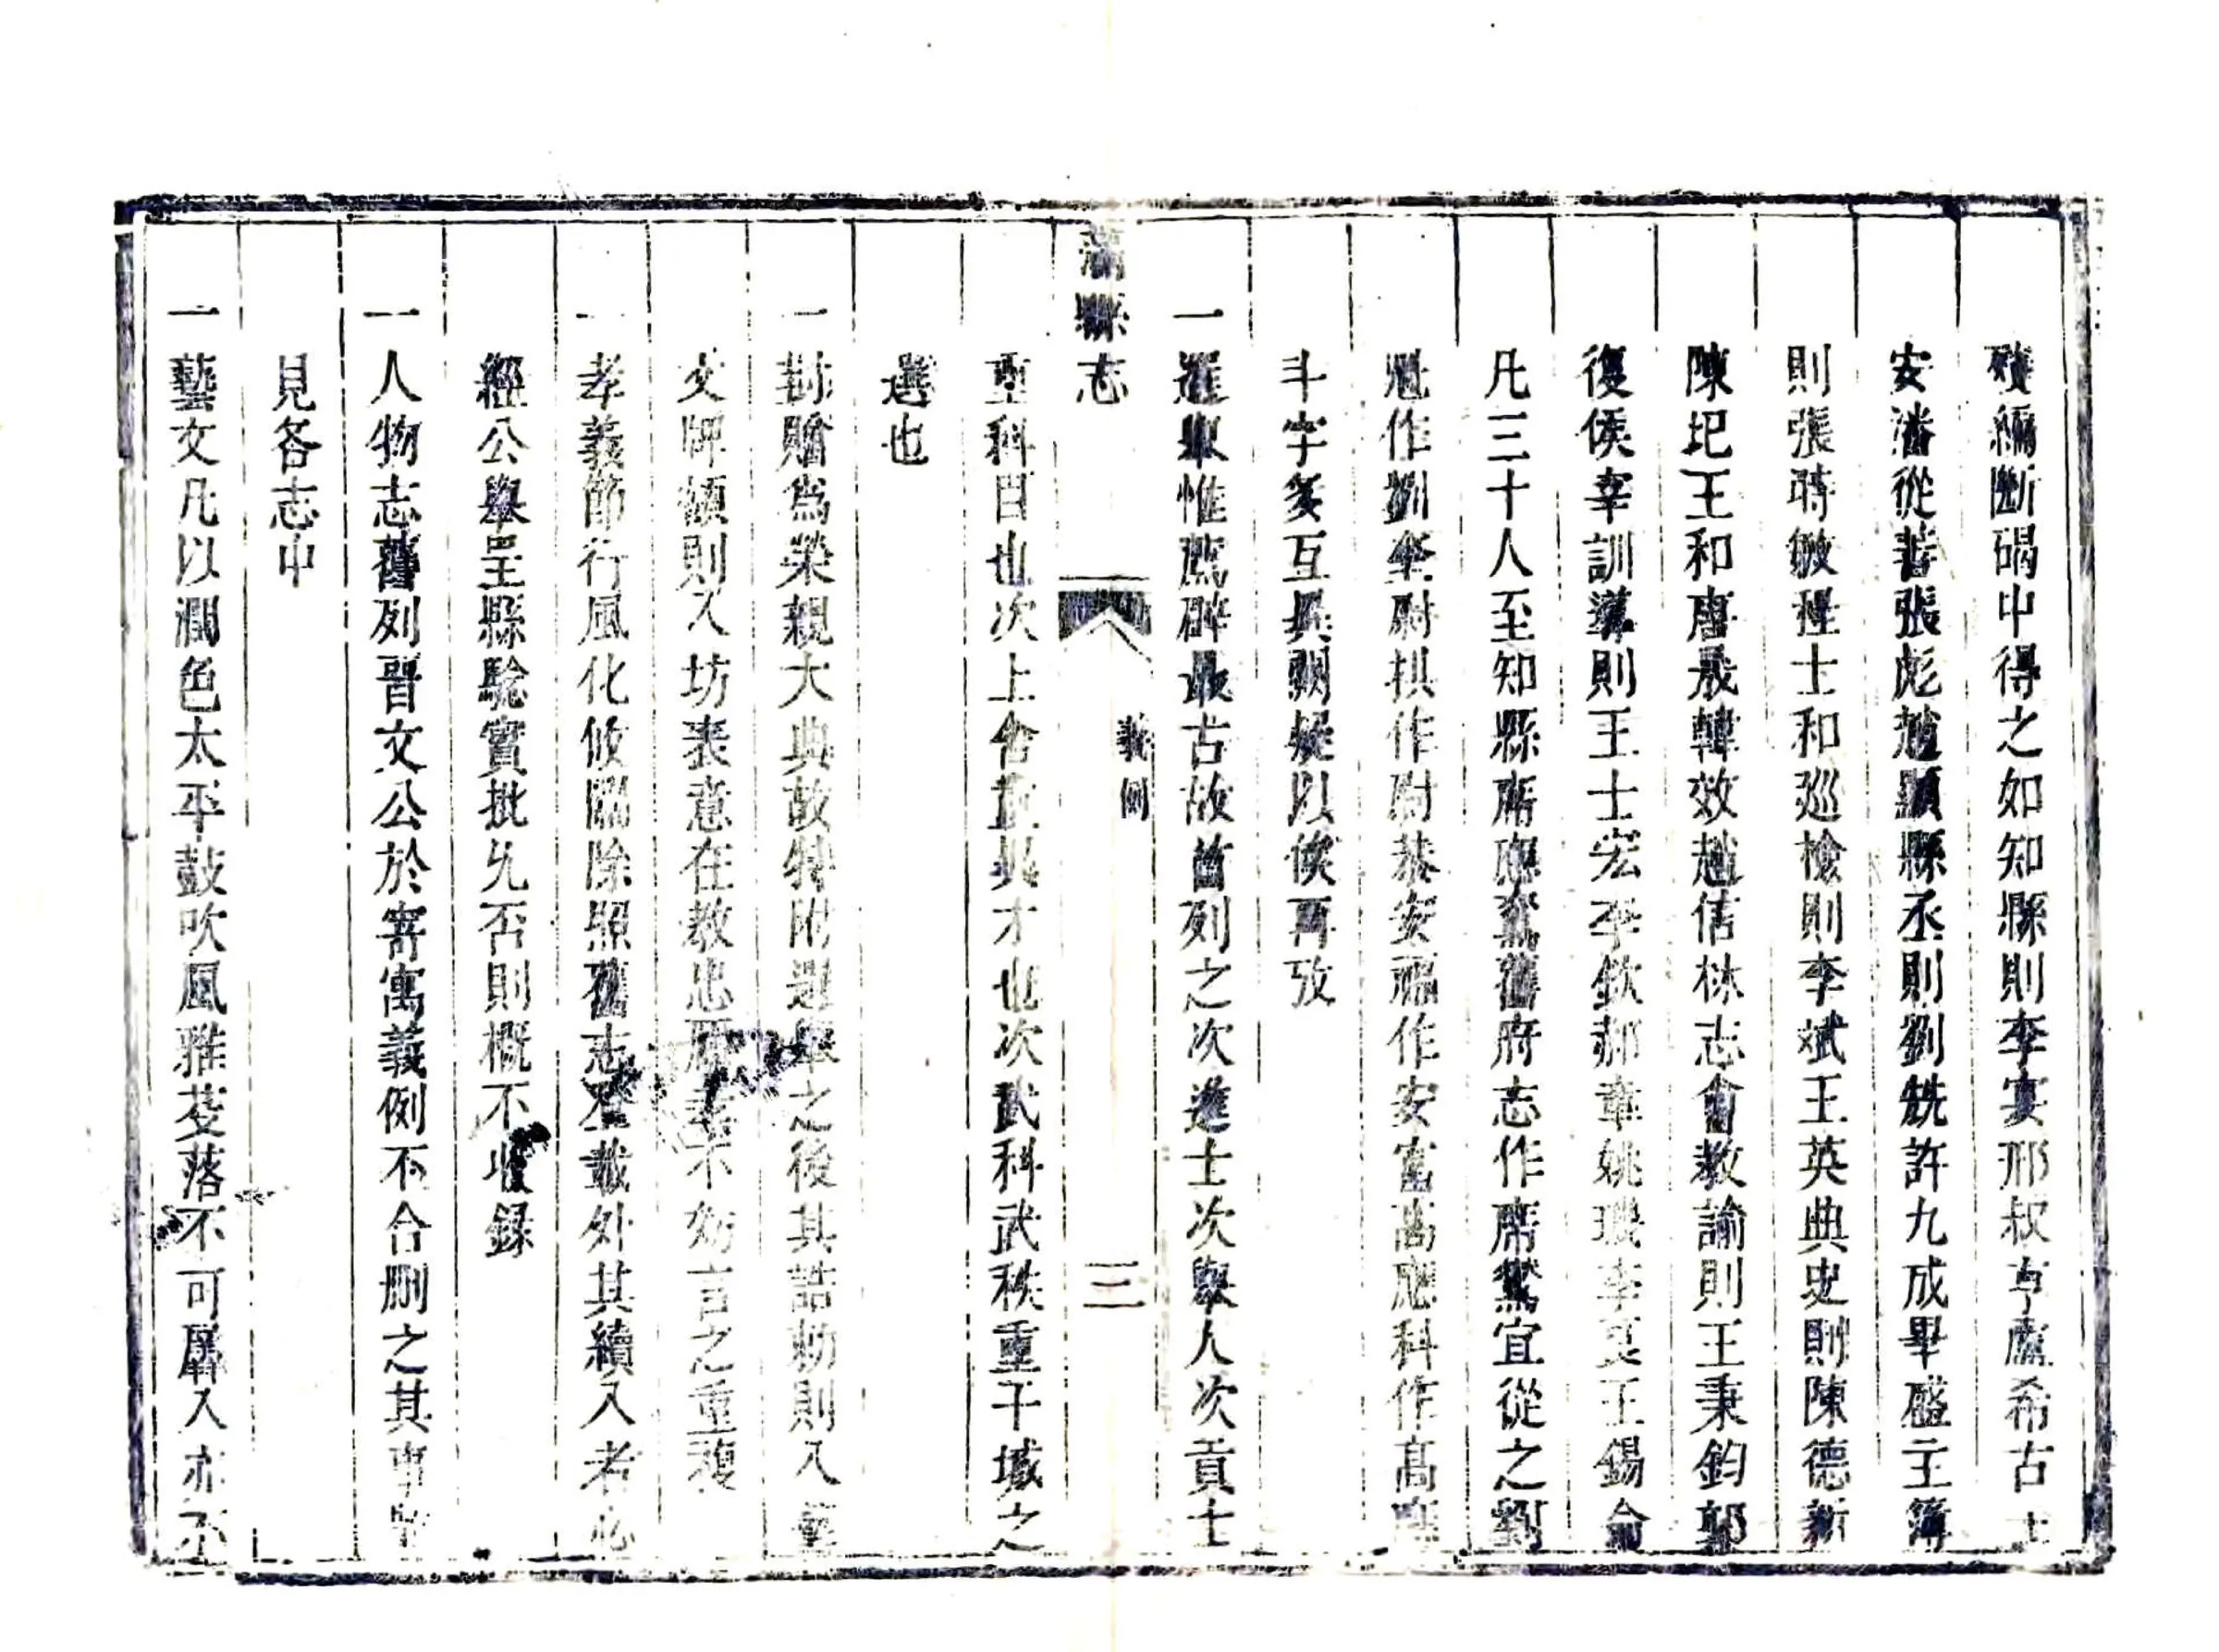 殘編斷碣中得之如知縣則李宴邢叔亨盧希古
安潘從善張彪趙顯縣丞則劉兟許九成畢盛主簿
則張時敏程士和巡檢則李斌王英典史則陳德新
陳圯王和唐晟韓效趙信林志會教諭則王秉鈞郭
復侯幸訓導則王士宏李欽郝章姚璣李 王錫俞
凡三十人至知縣席應 舊府志作席鷟宜從之劉
尅作劉奎尉拱作尉恭安福作安富高應科作高
斗字多互異闕疑以俟再攷
一選舉惟薦辟最古故首列之次進士次舉人次貢士
蒲縣志
義例
三
重科目也次上舍 其才也次武科武秩重干城之
選也
一封贈爲榮親大典故特附選舉之後其誥勅則入藝
文牌額則入坊表意在教忠 孝不妨言之重複
一孝義節行風化攸關除照舊志登載外其續入者必
經公舉呈縣驗實批允否則概不收録
一人物志舊列晋文公於寄寓義例不合刪之其事
見各志中
一藝文凡以潤色太平鼓吹風雅芟落不可羼入亦